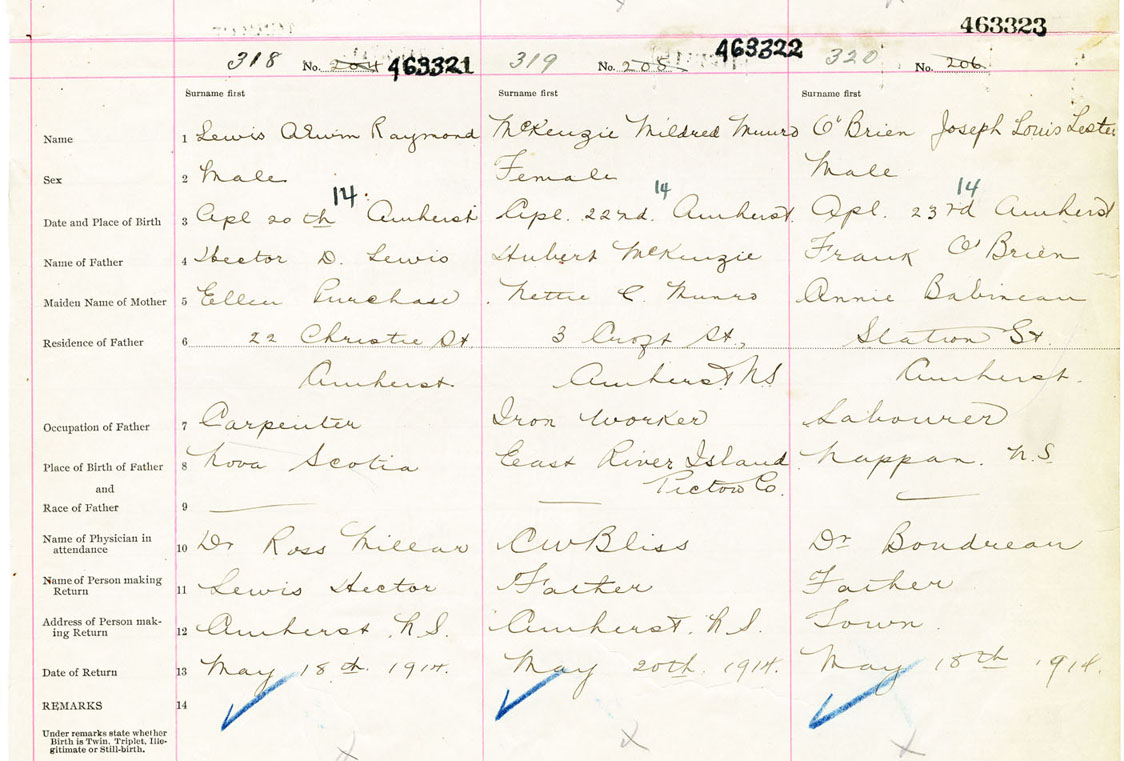 463323
318 No. 204 463321 319 No. 205 463322 320 No. 206
Surname first Surname first Surname first
Name 1 Lewis Raymond McKenzie Mildred Munro O'Brien Joseph Louis Lester
Sex 2 Male Female Male
14 14 14
Date and Place of Birth 3 Apl 20th Amherst Apl. 22nd. Amherst. Apl. 23rd Amherst
Name of Father 4 Hector D. Lewis Hubert McKenzie Frank O'Brien
Maiden Name of Mother 5 Ellen Purchase Nettie C. Munro Annie Babineau
Residence of Father 6 22 Christie St 3 St, Station St.
Amherst. Amherst NS Amherst.
Occupation of Father 7 Carpenter Iron Worker Labourer
Place of Birth of Father 8 Nova Scotia East River Island Nappan. N.S.
and Pictow Co.
Race of Father 9
Name of Physician in
attendance 10 Dr Ross Millar CW Bliss Dr Boudreau
Name of Person making
Return 11 Lewis Hector Father Father
Address of Person mak-
ing Return 12 Amherst N.S. Amherst. N.S. Town.
Date of Return 13 May 18th. 1914. May 20th. 1914. May 18th 1914.
REMARKS 14
Under remarks state whether
Birth is Twin, Triplet, Ille-
gitimate or Still-birth.